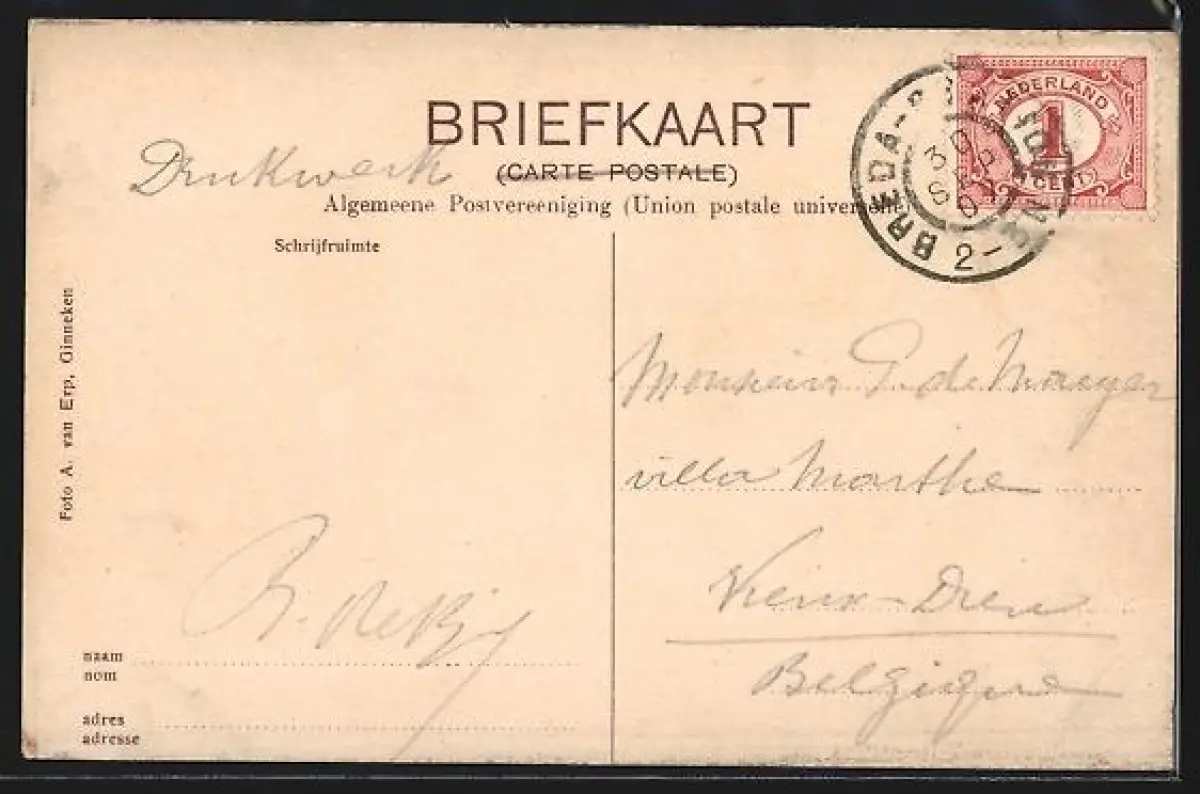 BRIEFKAART
Drukwerk
(CARTE POSTALE)
Algemeene Postvereeniging (Union postale universelle)
NEDERLAND
1
CENT
BREDA
30
SEP
2
Schrijfruimte
Foto A. van Erp, Ginneken
Monsieur G. de Maeyer
villa Marthe
Vieux-Dieu
Belgique
naam
nom
adres
adresse